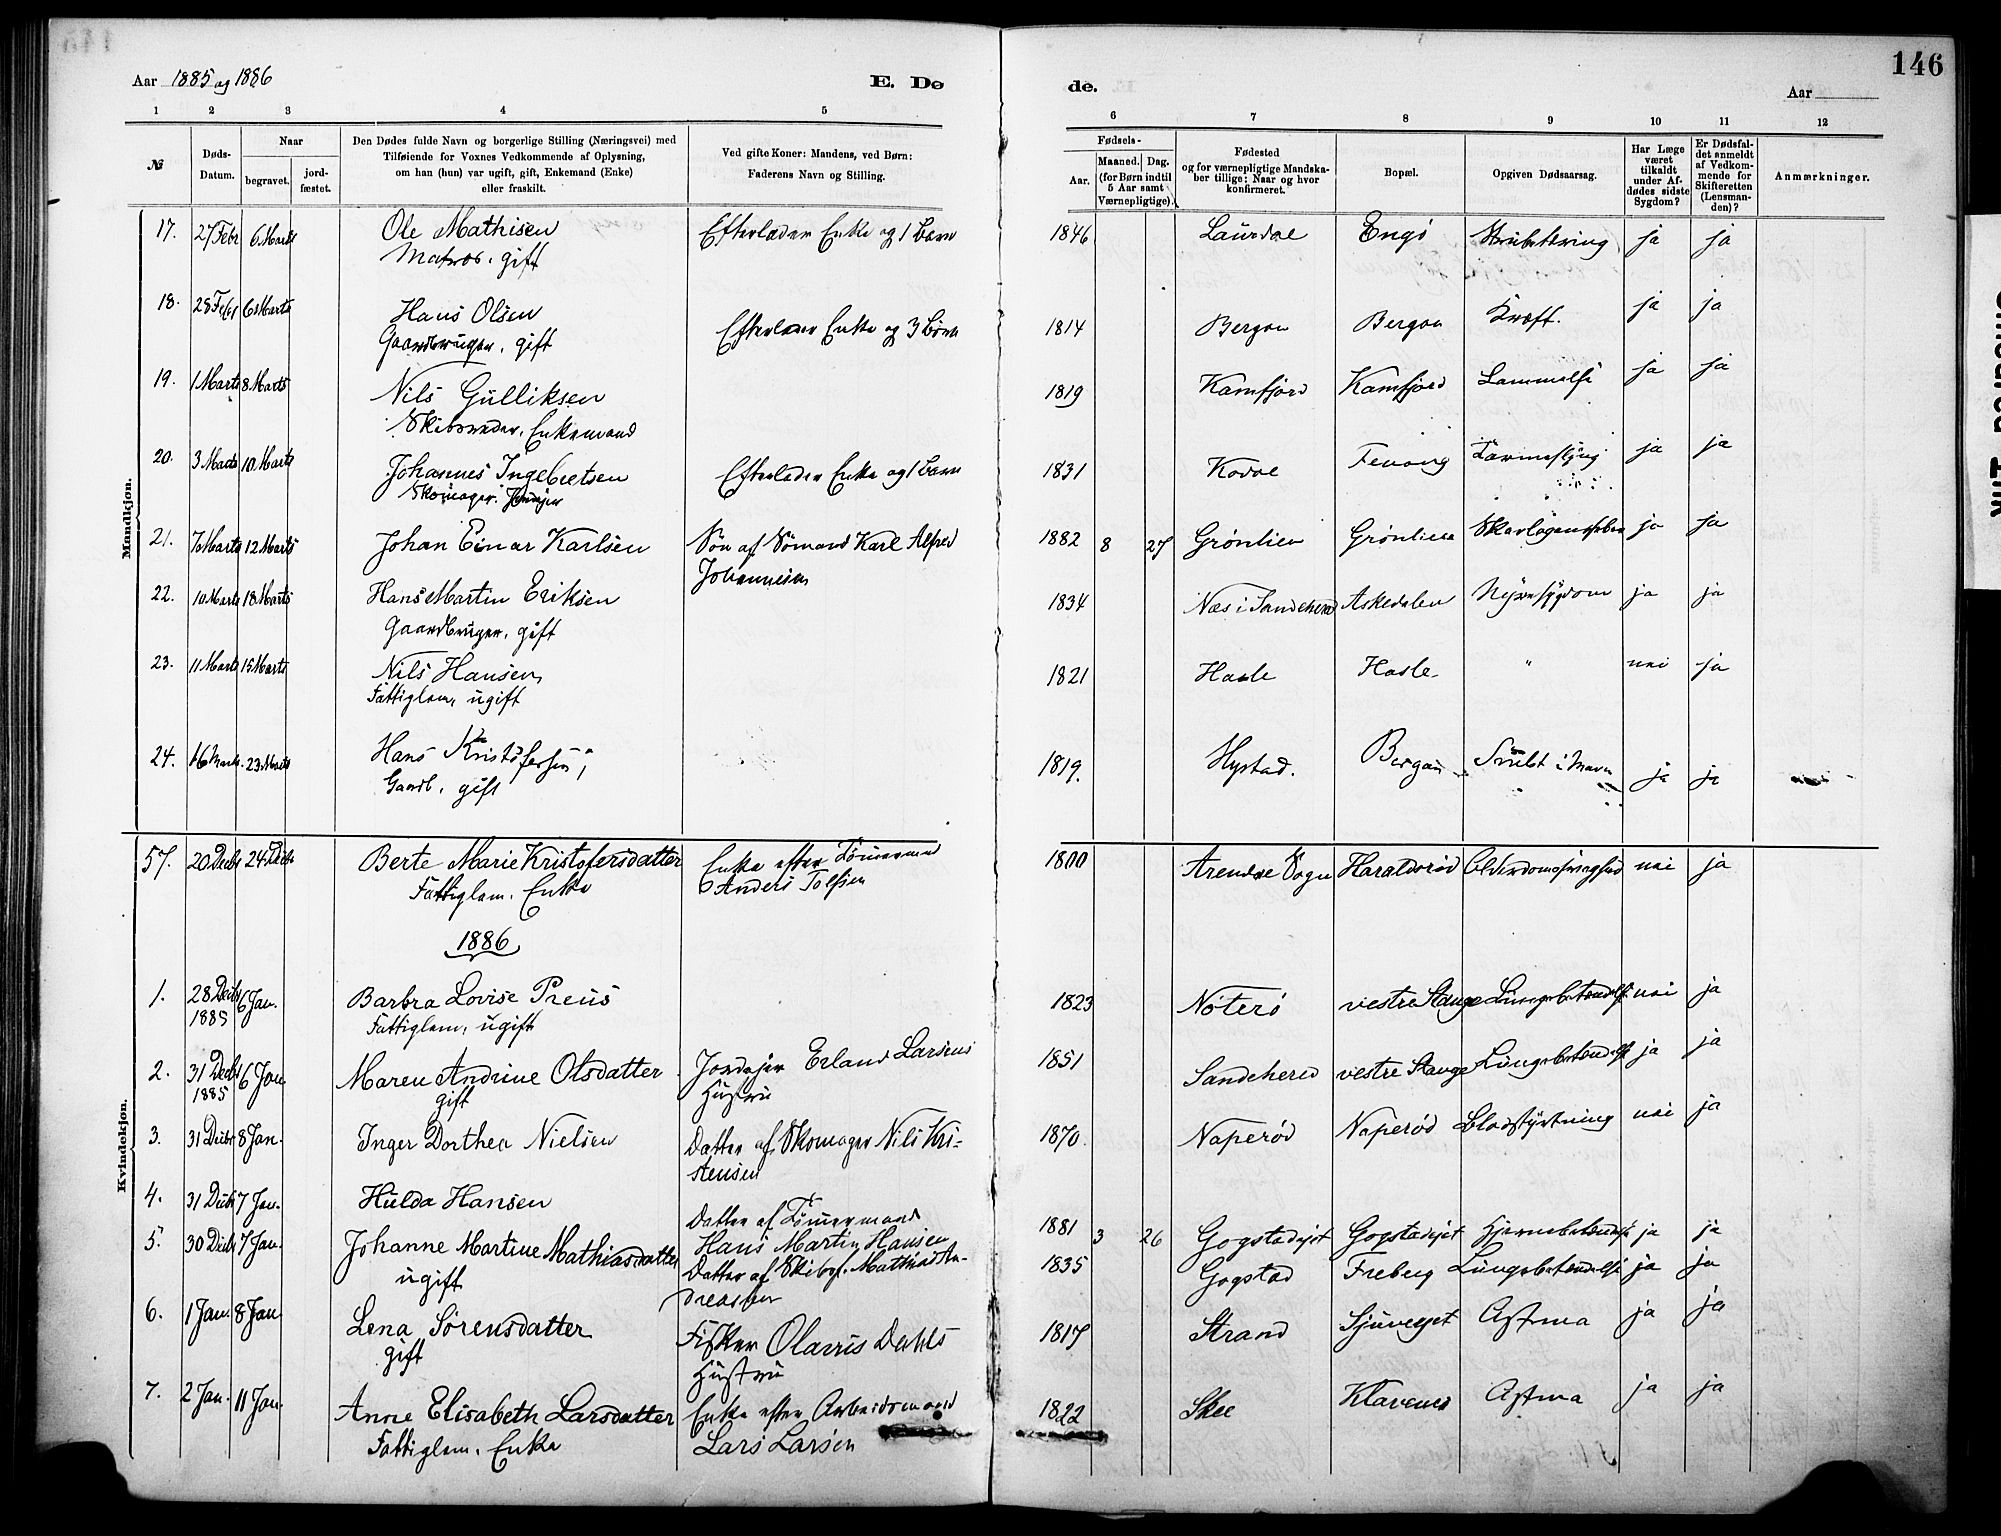 146
Aar 1885 og 1886
E. Dø
de.
Aar
1 2 3 4 5
6 7 8 9 10 11 12
№
Døds-
Datum.
Naar
begravet.
jord-
fæstet.
Den Dødes fulde Navn og borgerlige Stilling (Næringsvei) med
Tilføiende for Voxnes Vedkommende af Oplysning,
om han (hun) var ugift, gift, Enkemand (Enke)
eller fraskilt.
Ved gifte Koner: Mandens, ved Børn:
Faderens Navn og Stilling.
Fødsels-
Aar.
Maaned. Dag.
(for Børn indtil
5 Aar samt
Værnepligtige).
Fødested
og for værnepligtige Mandska-
ber tillige: Naar og hvor
konfirmeret.
Bopæl.
Opgiven Dødsaarsag.
Har Læge
været
tilkaldt
under Af-
dødes sidste
Sygdom?
Er Dødsfal-
det anmeldt
af Vedkom-
mende for
Skifteretten
(Lensman-
den)?
Anmærkninger.
Mandkjøn.
17. 27 Febr 6 Marts Ole Mathisen Efterlader Enke og 1 Barn 1846 Laurdal Engø Strubehering ja ja
Matros. gift
18. 28 Febr 6 Marts Hans Olsen Efterlader Enke og 3 Børn 1814 Bergan Bergan Kræft. ja ja
Gaardbruger, gift
19. 1 Marts 8 Marts Nils Gulliksen 1819 Kamfjord Kamfjord Lammelse ja ja
Skibsreder, Enkemand
20. 3 Marts 10 Marts Johannes Ingebretsen Efterlader Enke og 1 Barn 1831 Kodal ja ja
Skomager.
21. 7 Marts 12 Marts Johan Einar Karlsen Søn af Sømand Karl Alfred 1882 8 27 Grønlien Grønlien Skarlagensfeber ja ja
Johannesen
22. 10 Marts 18 Marts Hans Martin Eriksen 1834 Næs i Sandeherd Askedalen Nyresygdom ja ja
Gaardbruger, gift
23. 11 Marts 15 Marts Nils Hansen, 1821 Hasle Hasle. " nei ja
Fattiglem, ugift
24. 16 Marts. 23 Marts Hans Kristofersen, 1819. Hystad. Bergan i Maven ja ja
Gaardb. gift
Kvindekjøn.
57. 20 Decbr 24 Decbr Berte Marie Kristofersdatter Enke efter Tømmermand 1800 Arendal Sogn Haraldsrød Alderdomssvaghed nei ja
Fattiglem. Enke Anders Tolfsen
1886
1. 28 Decbr 6 Jan. Barbra Lovise Preus 1823 Nøterø vestre Stange Lungebetændelse nei ja
1885 Fattiglem, ugift
2. 31 Decbr 6 Jan Maren Andrine Olsdatter Jordejer Erland Larsens 1851 Sandeherred vestre Stange Lungebetændelse ja ja
1885 gift Hustru
3. 31 Decbr 8 Jan. Inger Dorthea Nielsen Datter af Skomager Nils Kri- 1870. Naperød Naperød Blodstyrtning nei ja
stensen
4. 31 Decbr 7 Jan. Hulda Hansen Datter af Tømmermand 1881 3 26 Gogstadejet Gogstadejet Hjernebetændelse ja ja
Hans Martin Hansen
5. 30 Decbr 7 Jan. Johanne Martine Mathiasdatter Datter af Skibsf. Mathias An- 1835 Gogstad Freberg Lungebetændelse ja ja
ugift dreassen
6. 1 Jan. 8 Jan Lena Sørensdatter Fisker Olavus Dahls 1817 Strand Sjuveget Astma ja ja
gift Hustru
7. 2 Jan. 11 Jan. Anne Elisabeth Larsdatter Enke efter Arbeidsmand 1822 Skee Klavenes Astma ja ja
Fattiglem. Enke Lars Larsen